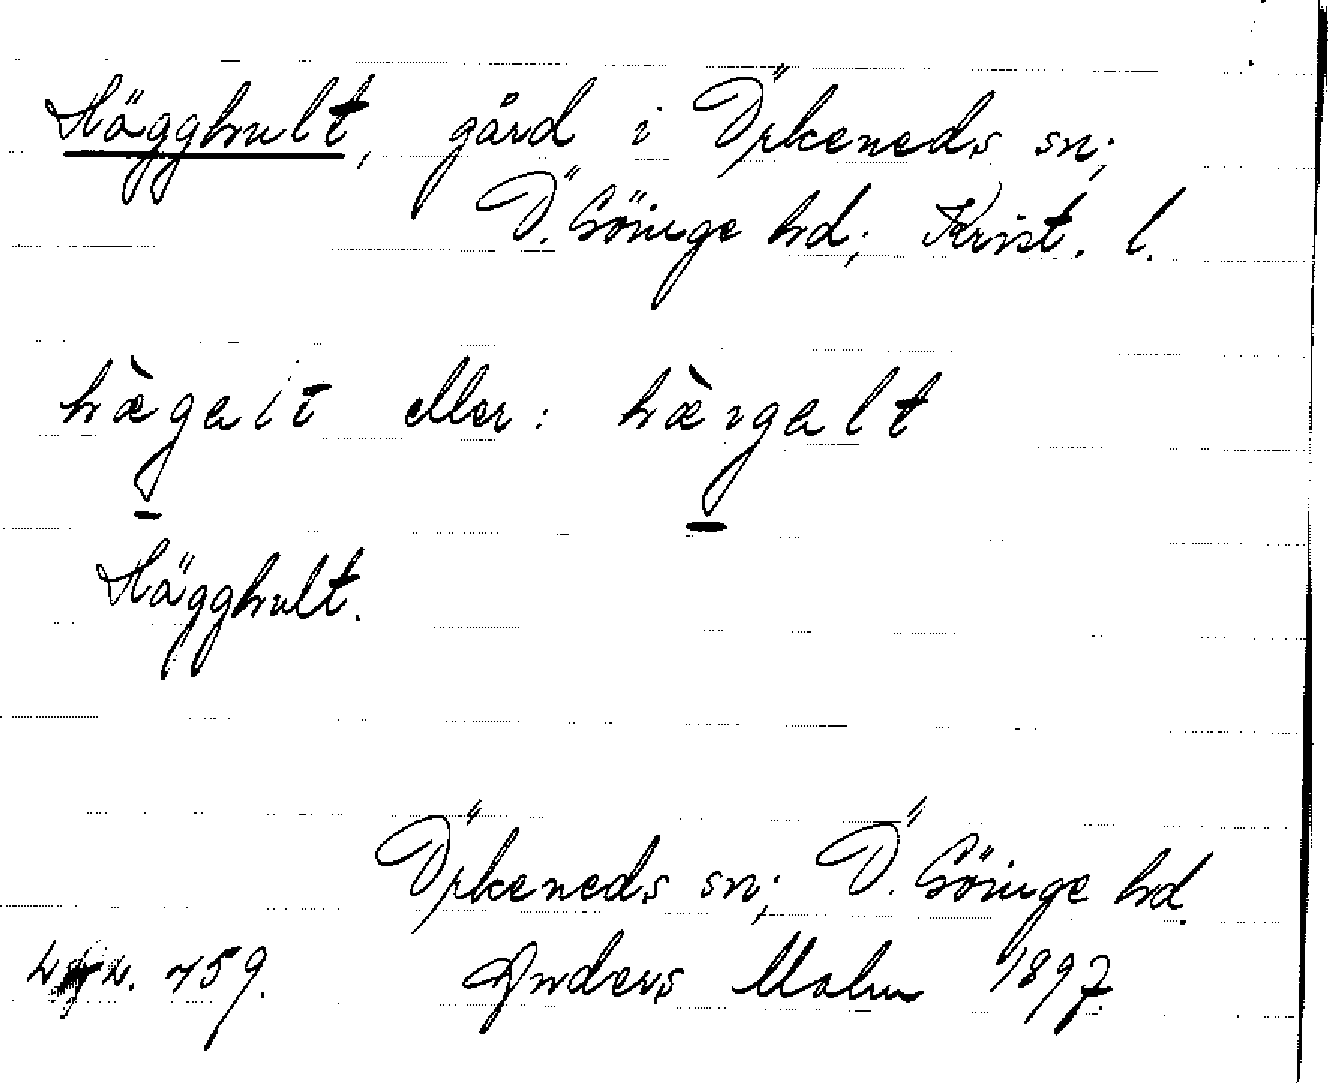 Hägghult, gård i Örkeneds sn;
Ö. Göinge hd; Krist. l.
hæ̀galt eller: hæ̀ꞮgaƖt
Hägghult.
Örkeneds sn; Ö. Göinge hd.
459. Anders Malm 1897.